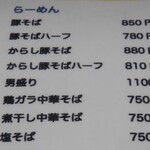 らーめん
豚そば 850円
豚そばハーフ 780円
からし豚そば 880円
からし豚そばハーフ 810
男盛り 1100
鶏ガラ中華そば 750
煮干し中華そば 750
塩そば 750